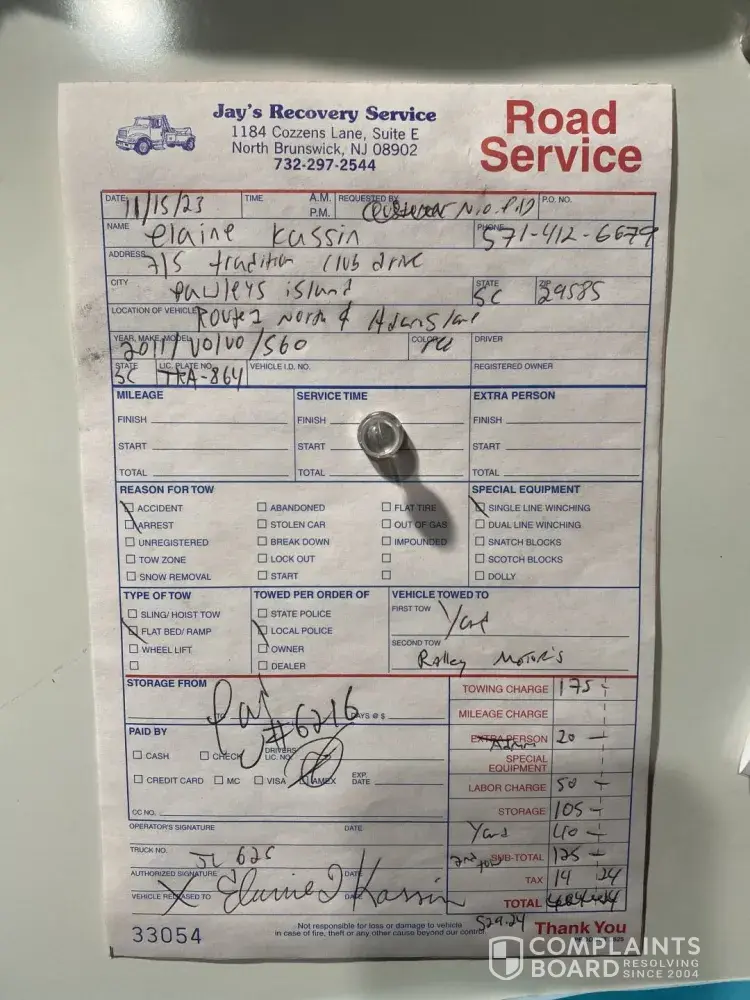 Jay's Recovery Service
1184 Cozzens Lane, Suite E
North Brunswick, NJ 08902
732-297-2544
Road
Service
DATE 11/15/23 TIME A.M. P.M. REQUESTED BY Customer N.B.P.D P.O. NO.
NAME elaine kassin PHONE 571-412-6679
ADDRESS 715 tradition club drive
CITY pawleys island STATE SC ZIP 29585
LOCATION OF VEHICLE Route 1 North & Adams lane
YEAR, MAKE, MODEL 2011/Volvo/S60 COLOR DRIVER
STATE SC LIC. PLATE NO. TRA-864 VEHICLE I.D. NO. REGISTERED OWNER
MILEAGE SERVICE TIME EXTRA PERSON
FINISH FINISH FINISH
START START START
TOTAL TOTAL TOTAL
REASON FOR TOW SPECIAL EQUIPMENT
ACCIDENT ABANDONED FLAT TIRE SINGLE LINE WINCHING
ARREST STOLEN CAR OUT OF GAS DUAL LINE WINCHING
UNREGISTERED BREAK DOWN IMPOUNDED SNATCH BLOCKS
TOW ZONE LOCK OUT SCOTCH BLOCKS
SNOW REMOVAL START DOLLY
TYPE OF TOW TOWED PER ORDER OF VEHICLE TOWED TO
SLING/ HOIST TOW STATE POLICE FIRST TOW Yard
FLAT BED/ RAMP LOCAL POLICE
WHEEL LIFT OWNER SECOND TOW Motors
DEALER
STORAGE FROM TO DAYS @ $
#6216
PAID BY
CASH CHECK DRIVERS LIC. NO.
CREDIT CARD MC VISA AMEX EXP. DATE
CC NO.
OPERATOR'S SIGNATURE DATE
TRUCK NO. 625
AUTHORIZED SIGNATURE DATE
VEHICLE RELEASED TO X Elaine J Kassin DATE
TOWING CHARGE 175 -
MILEAGE CHARGE
EXTRA PERSON Admin 20 -
SPECIAL EQUIPMENT
LABOR CHARGE 50 -
STORAGE 105 -
Yard 40 -
2nd tow SUB-TOTAL 125 -
TAX 14 24
TOTAL
529.24
33054
Not responsible for loss or damage to vehicle
in case of fire, theft or any other cause beyond our control.
Thank You
COMPLAINTS
BOARD RESOLVING
SINCE 2004